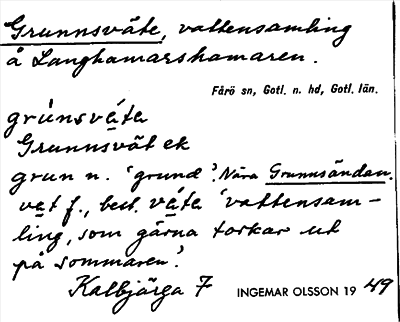 Grunnsväte, vattensamling
å Langhamarshamaren.
Fårö sn, Gotl. n. hd, Gotl. län.
grùnsvä́ta
Grunnsvät ek
grun n. 'grund'. Nära Grunnsändan.
vät f., best. väta 'vattensam-
ling, som gärna torkar ut
på sommaren'.
Kalbjärga 7 INGEMAR OLSSON 1949